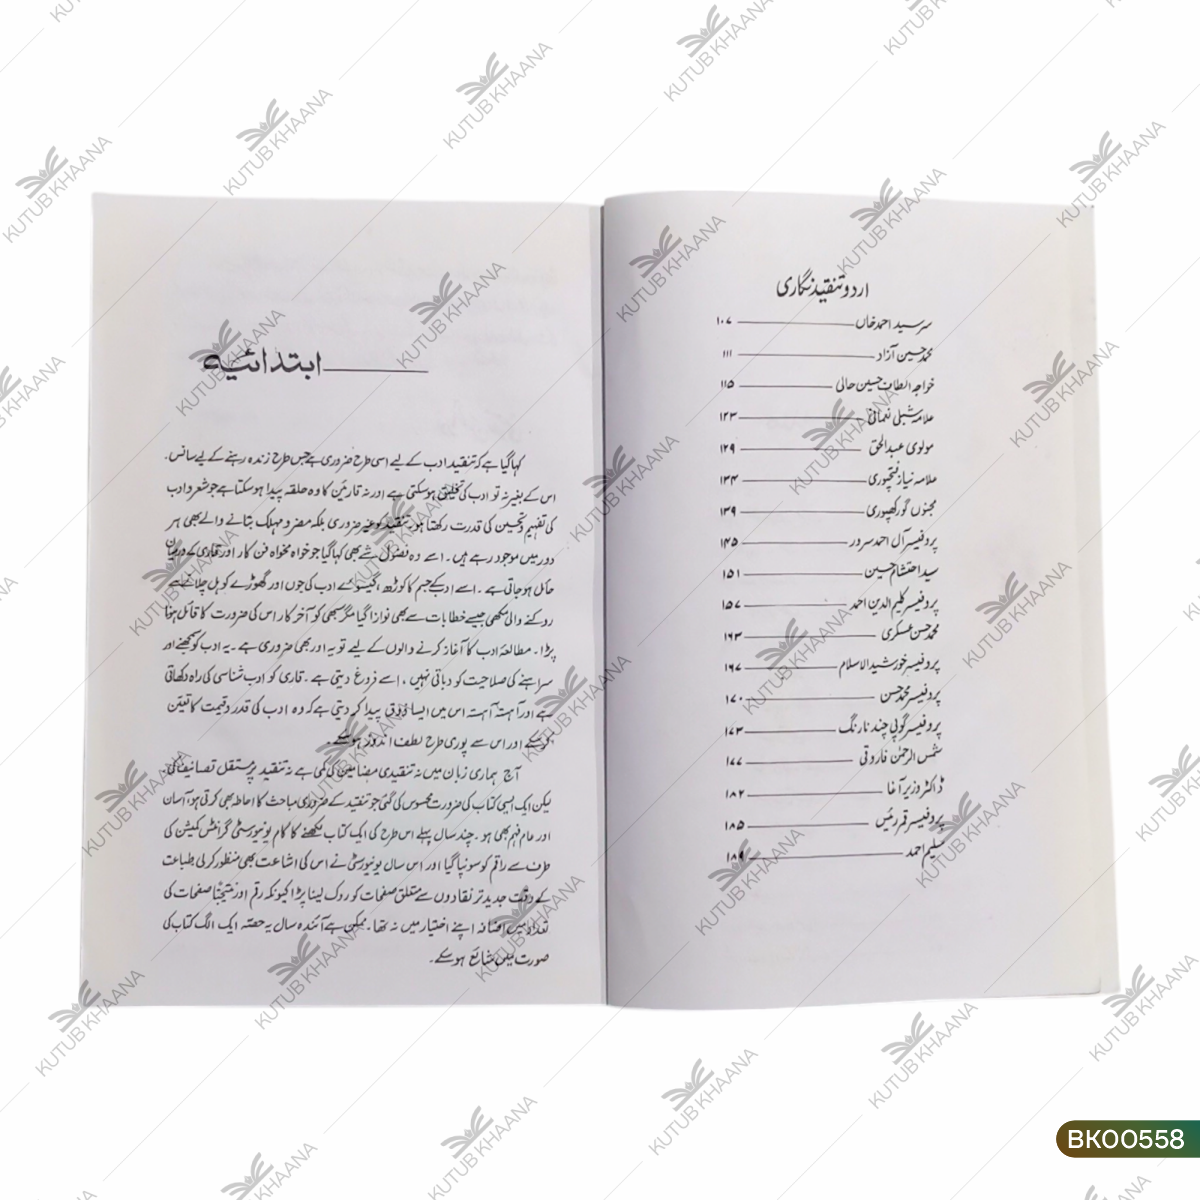 اردو تنقید نگاری
سرسید احمد خاں ۱۰۷
محمد حسین آزاد ۱۱۱
خواجہ الطاف حسین حالی ۱۱۵
علامہ شبلی نعمانی ۱۲۳
مولوی عبدالحق ۱۲۹
علامہ نیاز فتحپوری ۱۳۴
مجنوں گورکھپوری ۱۳۹
پروفیسر آل احمد سرور ۱۴۵
سید احتشام حسین ۱۵۱
پروفیسر کلیم الدین احمد ۱۵۷
محمد حسن عسکری ۱۶۳
پروفیسر خورشید الاسلام ۱۶۷
پروفیسر محمد حسن ۱۷۰
پروفیسر گوپی چند نارنگ ۱۷۳
شمس الرحمٰن فاروقی ۱۷۷
ڈاکٹر وزیر آغا ۱۸۲
پروفیسر قمر رئیس ۱۸۵
سلیم احمد ۱۸۹
ابتدائیہ
کہا گیا ہے کہ تنقید ادب کے لیے اسی طرح ضروری ہے جس طرح زندہ رہنے کے لیے سانس۔
اس کے بغیر نہ تو ادب کی تخلیق ہو سکتی ہے اور نہ قارئین کا وہ حلقہ پیدا ہو سکتا ہے جو شعر و ادب
کی تفہیم و تحسین کی قدرت رکھتا ہو۔ تنقید کو غیر ضروری بلکہ مضر و مہلک بتانے والے بھی ہر
دور میں موجود رہے ہیں۔ اسے وہ فضول شے بھی کہا گیا جو خواہ مخواہ فن کار اور قاری کے درمیان
حائل ہو جاتی ہے۔ اسے ادب کے جسم کا کوڑھ، گیسوئے ادب کی جوں اور گھوڑے کو ہل چلانے سے
روکنے والی مکھی جیسے خطابات سے بھی نوازا گیا مگر سبھی کو آخر کار اس کی ضرورت کا قائل ہونا
پڑا۔ مطالعہ ادب کا آغاز کرنے والوں کے لیے تو یہ اور بھی ضروری ہے۔ یہ ادب کو سمجھنے اور
سراہنے کی صلاحیت کو دباتی نہیں، اسے فروغ دیتی ہے۔ قاری کو ادب شناسی کی راہ دکھاتی
ہے اور آہستہ آہستہ اس میں ایسا ذوق پیدا کر دیتی ہے کہ وہ ادب کی قدر و قیمت کا تعین
کر سکے اور اس سے پوری طرح لطف اندوز ہو سکے۔
آج ہماری زبان میں نہ تنقیدی مضامین کی کمی ہے نہ تنقید پر مستقل تصانیف کی۔
لیکن ایک ایسی کتاب کی ضرورت محسوس کی گئی جو تنقید کے ضروری مباحث کا احاطہ بھی کرتی ہو، آسان
اور عام فہم بھی ہو۔ چند سال پہلے اس طرح کی ایک کتاب لکھنے کا کام یونیورسٹی گرانٹس کمیشن کی
طرف سے راقم کو سونپا گیا اور اس سال یونیورسٹی نے اس کی اشاعت بھی منظور کر لی۔ طباعت
کے وقت جدید تر نقادوں سے متعلق صفحات کو روک لینا پڑا کیونکہ رقم اور نتیجتاً صفحات کی
تعداد میں اضافہ اپنے اختیار میں نہ تھا۔ ممکن ہے آئندہ سال یہ حصہ ایک الگ کتاب کی
صورت میں شائع ہو سکے۔
KUTUB KHAANA
BK00558